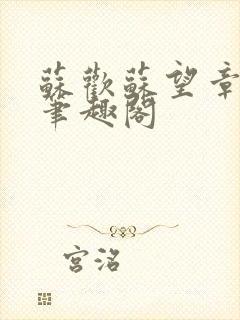 蘇歡蘇望章
筆趣閣
宮洺